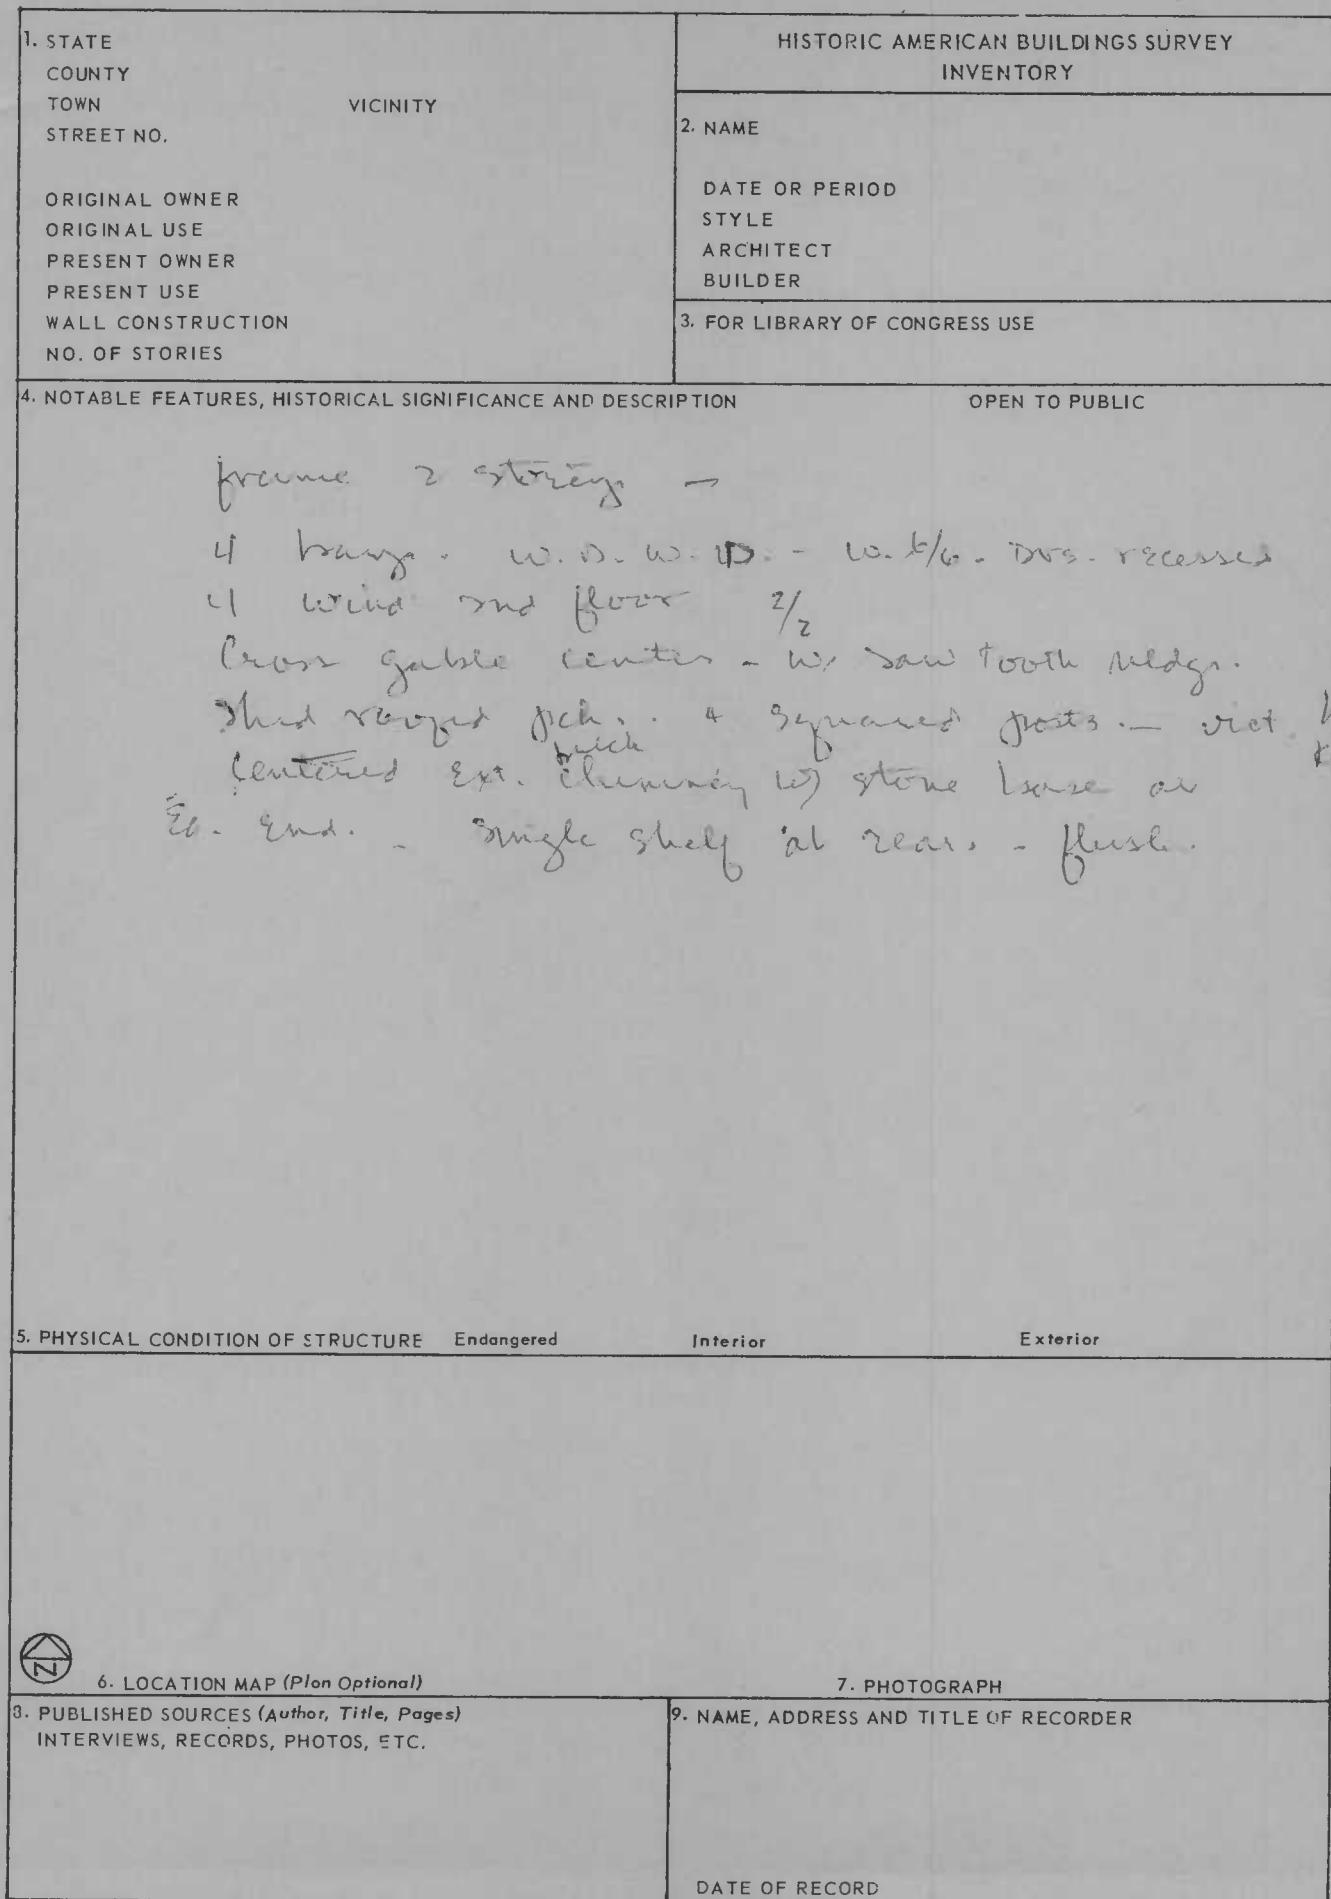 1. STATE
COUNTY
TOWN VICINITY
STREET NO.
ORIGINAL OWNER
ORIGINAL USE
PRESENT OWNER
PRESENT USE
WALL CONSTRUCTION
NO. OF STORIES
HISTORIC AMERICAN BUILDINGS SURVEY
INVENTORY
2. NAME
DATE OR PERIOD
STYLE
ARCHITECT
BUILDER
3. FOR LIBRARY OF CONGRESS USE
4. NOTABLE FEATURES, HISTORICAL SIGNIFICANCE AND DESCRIPTION OPEN TO PUBLIC
frame 2 storeys -
4 bays. W. D. W. D. - W. 6/6. Drs. recessed
4 wind 2nd floor 2/2
Cross gable center - w/ saw tooth mldgs.
Shed roofed pch. . 4 squared posts. - vict
Centered Ext. brick chimney w/ stone base on
Ea. End. - single shelf at rear. - flush.
5. PHYSICAL CONDITION OF STRUCTURE Endangered Interior Exterior
N
6. LOCATION MAP (Plan Optional)
7. PHOTOGRAPH
8. PUBLISHED SOURCES (Author, Title, Pages)
INTERVIEWS, RECORDS, PHOTOS, ETC.
9. NAME, ADDRESS AND TITLE OF RECORDER
DATE OF RECORD